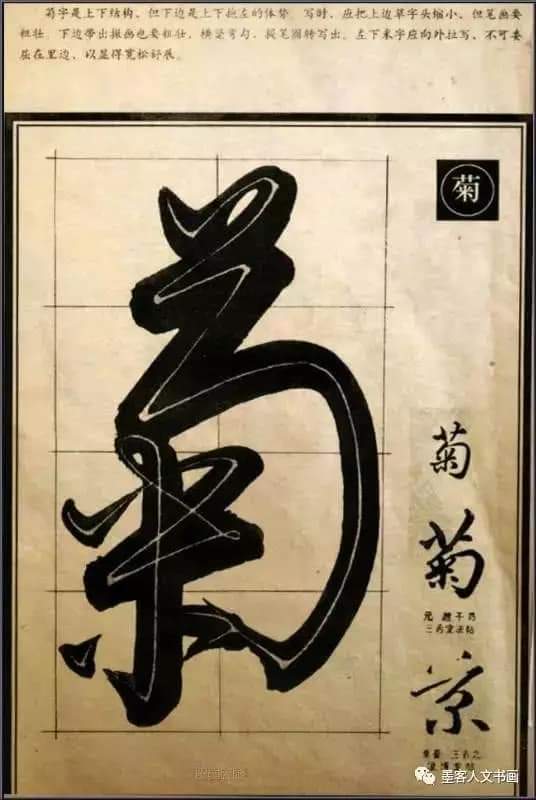 菊字是上下结构、但下边是上下抱左的体势。写时、应把上边草字头缩小、但笔画要
粗壮。下边带出撇画也要粗壮，横竖弯勾、提笔圆转写出。左下米字应向外拉写、不可委
屈在里边、以显得宽松舒展。
菊
菊
菊
菊
元 赵子昂
三希堂法帖
墨客人文书画